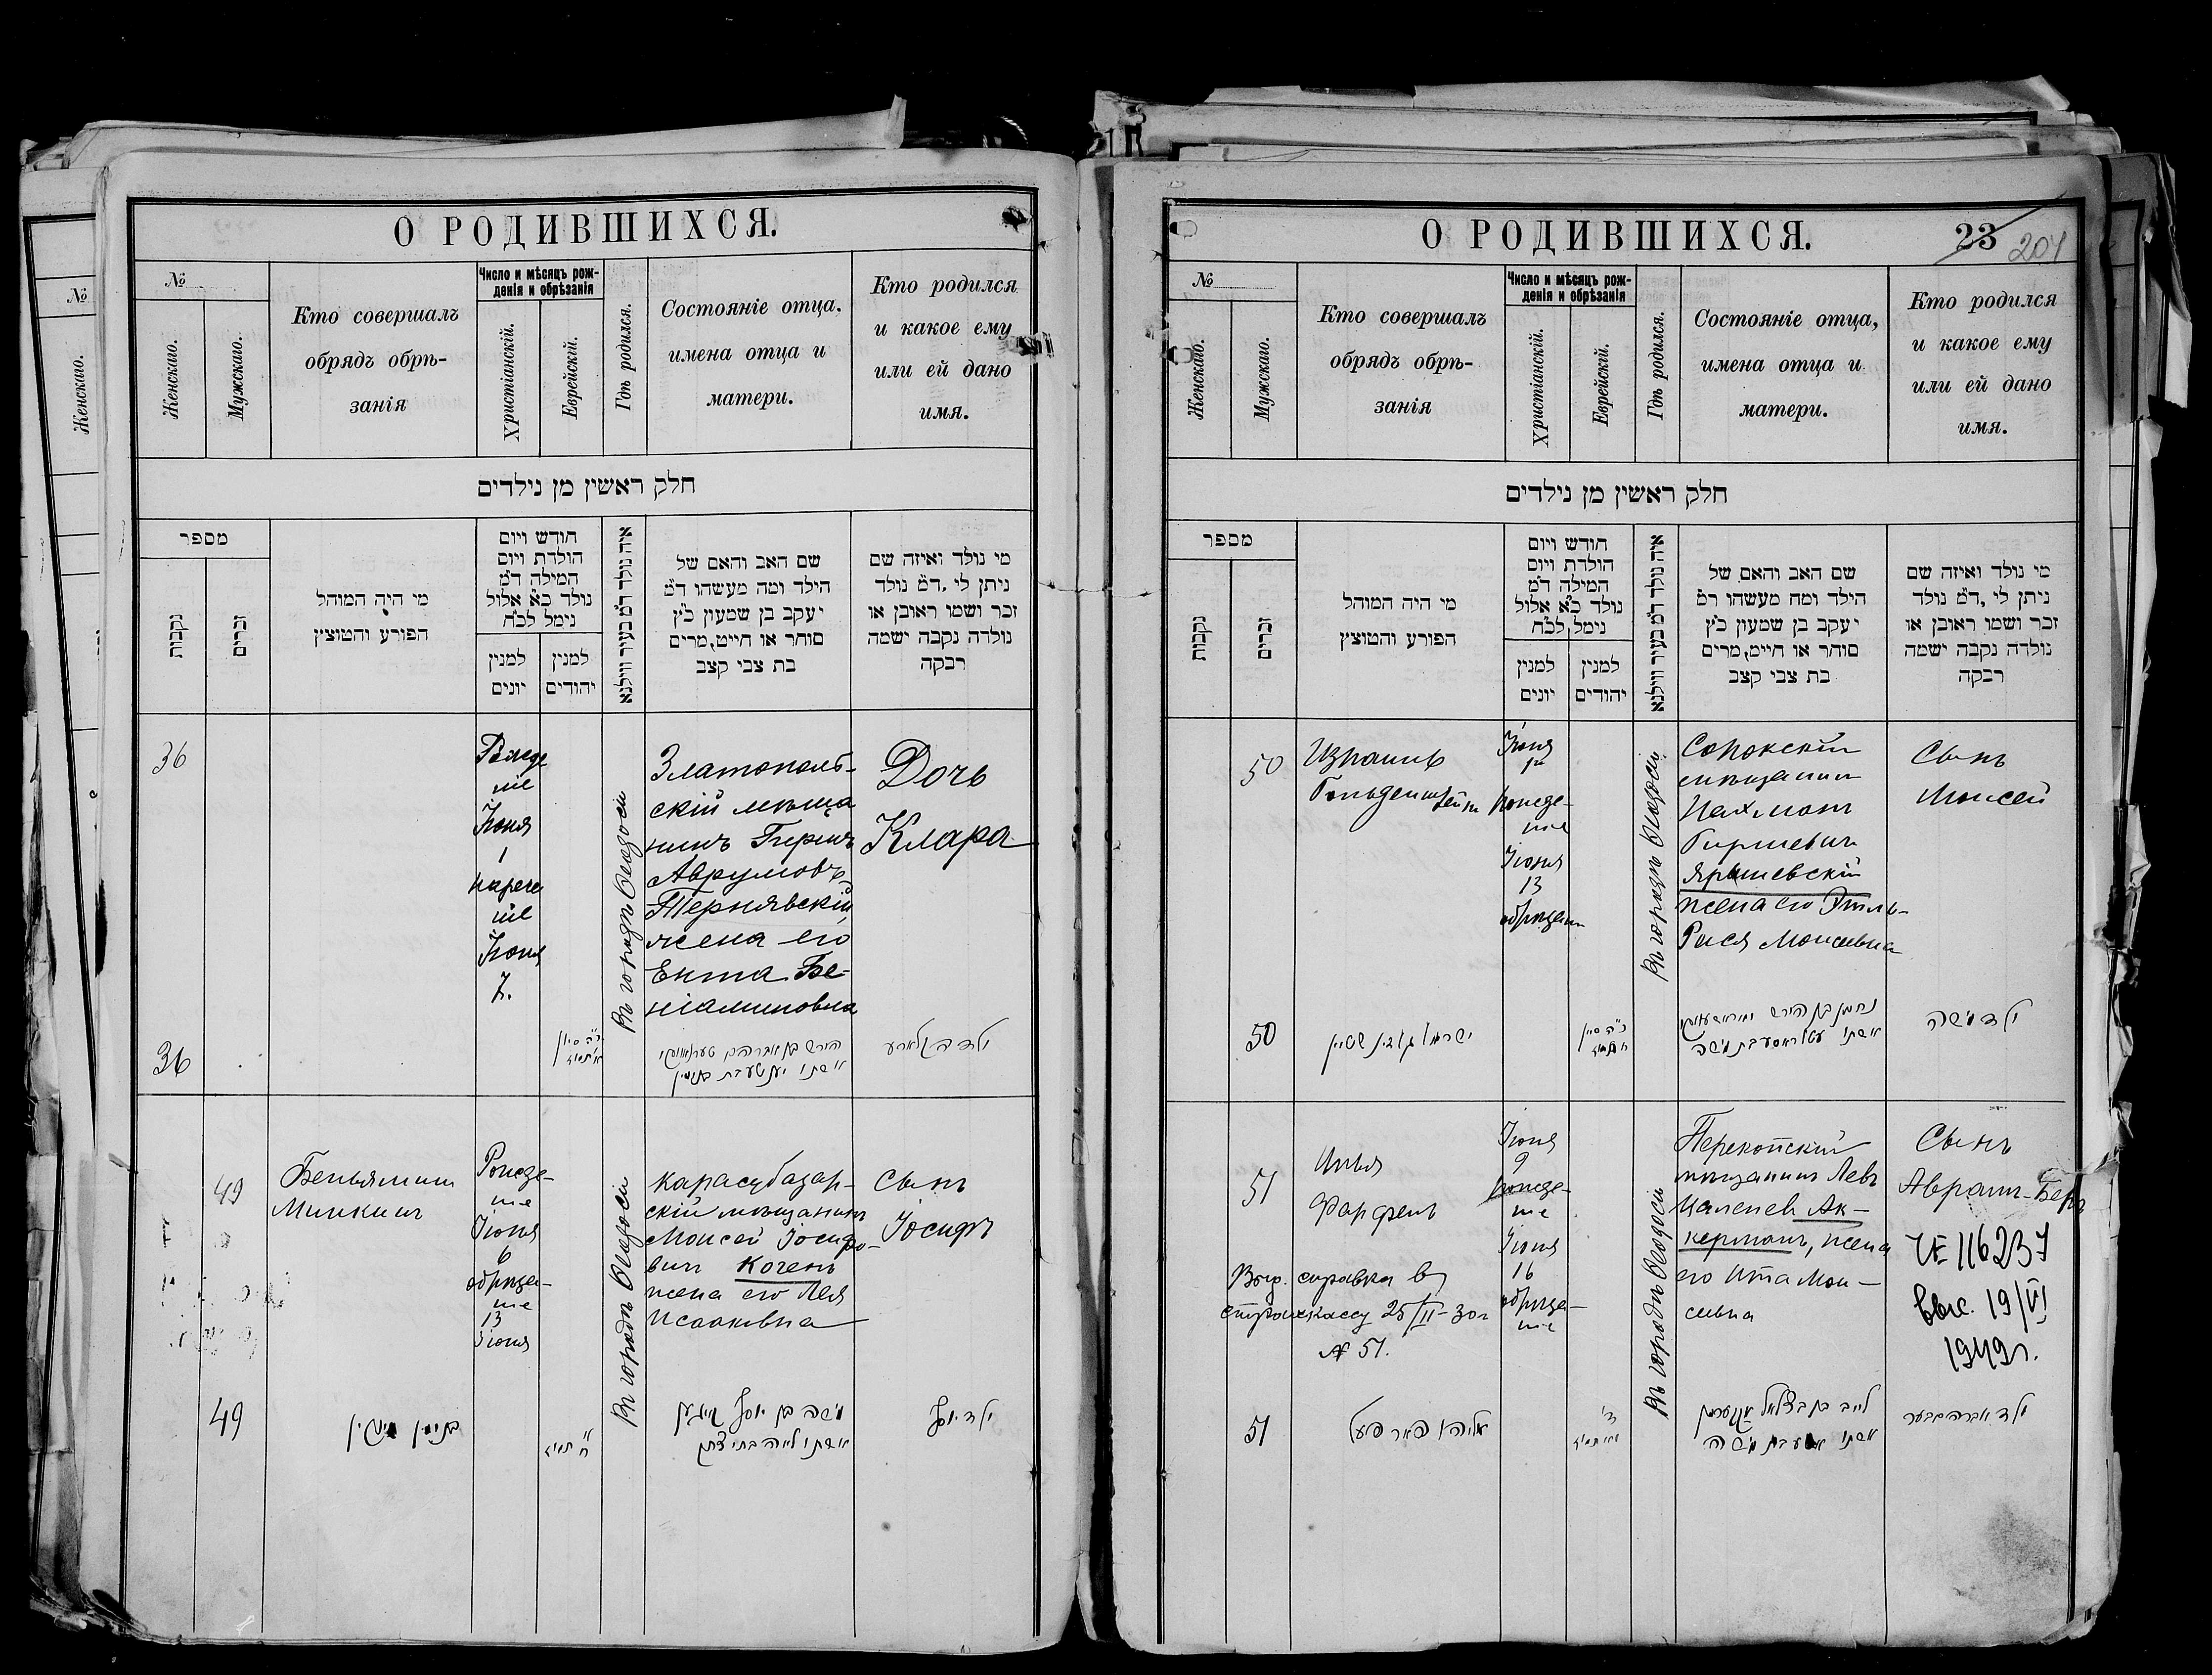 О РОДИВШИХСЯ.
№
Женскаго.
Мужскаго.
Кто совершалъ
обрядъ обрѣ-
занія
Число и мѣсяцъ рож-
денія и обрѣзанія
Христіанскій.
Еврейскій.
Гдѣ родился.
Состояніе отца.
имена отца и
матери.
Кто родился
и какое ему
или ей дано
имя.
חלק ראשין מן נילדים
מספר
נקבות
זכרים
מי היה המוהל
הפורע והמוצץ
חודש ויום
הולדת ויום
המילה ד״מ
נולד כ״א אלול
נימל לכ״ח
למנין
יונים
למנין
יהודים
איה נולד ד״מ בעיר ווילנא
שם האב והאם של
הילד ומה מעשהו ד״מ
יעקב בן שמעון כ״ץ
סוחר או חייט, מרים
בת צבי קצב
מי נולד ואיזה שם
ניתן לי, ד״מ נולד
זכר ושמו ראובן או
נולדה נקבה ישמה
רבקה
36
Рожде
ніе
Іюня
1
нарече
ніе
Іюня
7.
Въ городѣ Ѳеодосіи
Златополь-
скій мѣща
нинъ Гершъ
Аврумовъ
Тернявскій,
жена его
Ента Бе-
ніаминовна
Дочь
Клара
36
הירש בן אברהם
אשתו יענטע בת בנימין
ילדה קלארע
49
Беньяминъ
Минкинъ
Рожде-
ніе
Іюня
6
обрѣза-
ніе
13
Іюня
Въ городѣ Ѳеодосіи
Карасубазар-
скій мѣщанинъ
Моисей Іосифо-
вичъ Когенъ
жена его Лея
Исааковна
Сынъ
Іосифъ
49
בנימין מינקין
משה בן יוסף
אשתו לאה בת יצחק
ילד יוסף
О РОДИВШИХСЯ.
23
204
№
Женскаго.
Мужскаго.
Кто совершалъ
обрядъ обрѣ-
занія
Число и мѣсяцъ рож-
денія и обрѣзанія
Христіанскій.
Еврейскій.
Гдѣ родился.
Состояніе отца,
имена отца и
матери.
Кто родился
и какое ему
или ей дано
имя.
חלק ראשין מן נילדים
מספר
נקבות
זכרים
מי היה המוהל
הפורע והמוצץ
חודש ויום
הולדת ויום
המילה ד״מ
נולד כ״א אלול
נימל לכ״ח
למנין
יונים
למנין
יהודים
איה נולד ד״מ בעיר ווילנא
שם האב והאם של
הילד ומה מעשהו ר״מ
יעקב בן שמעון כ״ץ
סוחר או חייט, מרים
בת צבי קצב
מי נולד ואיזה שם
ניתן לי, ד״מ נולד
זכר ושמו ראובן או
נולדה נקבה ישמה
רבקה
50
Израиль
Гольденштейнъ
Іюня
рожде-
ніе
Іюня
13
обрѣзаніе
Въ городѣ Ѳеодосіи
Сорокскій
мѣщанинъ
Нахманъ
Гиршевичъ
Ярышевскій
жена его Этль-
Рися Моисевна
Сынъ
Моисей
50
ישראל גאלדנשטיין
נחמן בן הירש
ילד משה
51
Илья
Фарфель
Іюня
9
рожде-
ніе
Іюня
16
обрѣза-
ніе
Въ городѣ Ѳеодосіи
Перекопскій
мѣщанинъ Левъ
Цалелев Ак-
керманъ, жена
его Ита Мои-
сівна
Сынъ
Аврамъ-Беръ
116237
выс. 19/VI
1949г.
Выд. справка в
страхкассу 25/II-30г
№ 51.
51
אליהו פארפעל
לייב בן בצלאל אקערמן
אשתו איטע בת משה
ילד אברהם בער